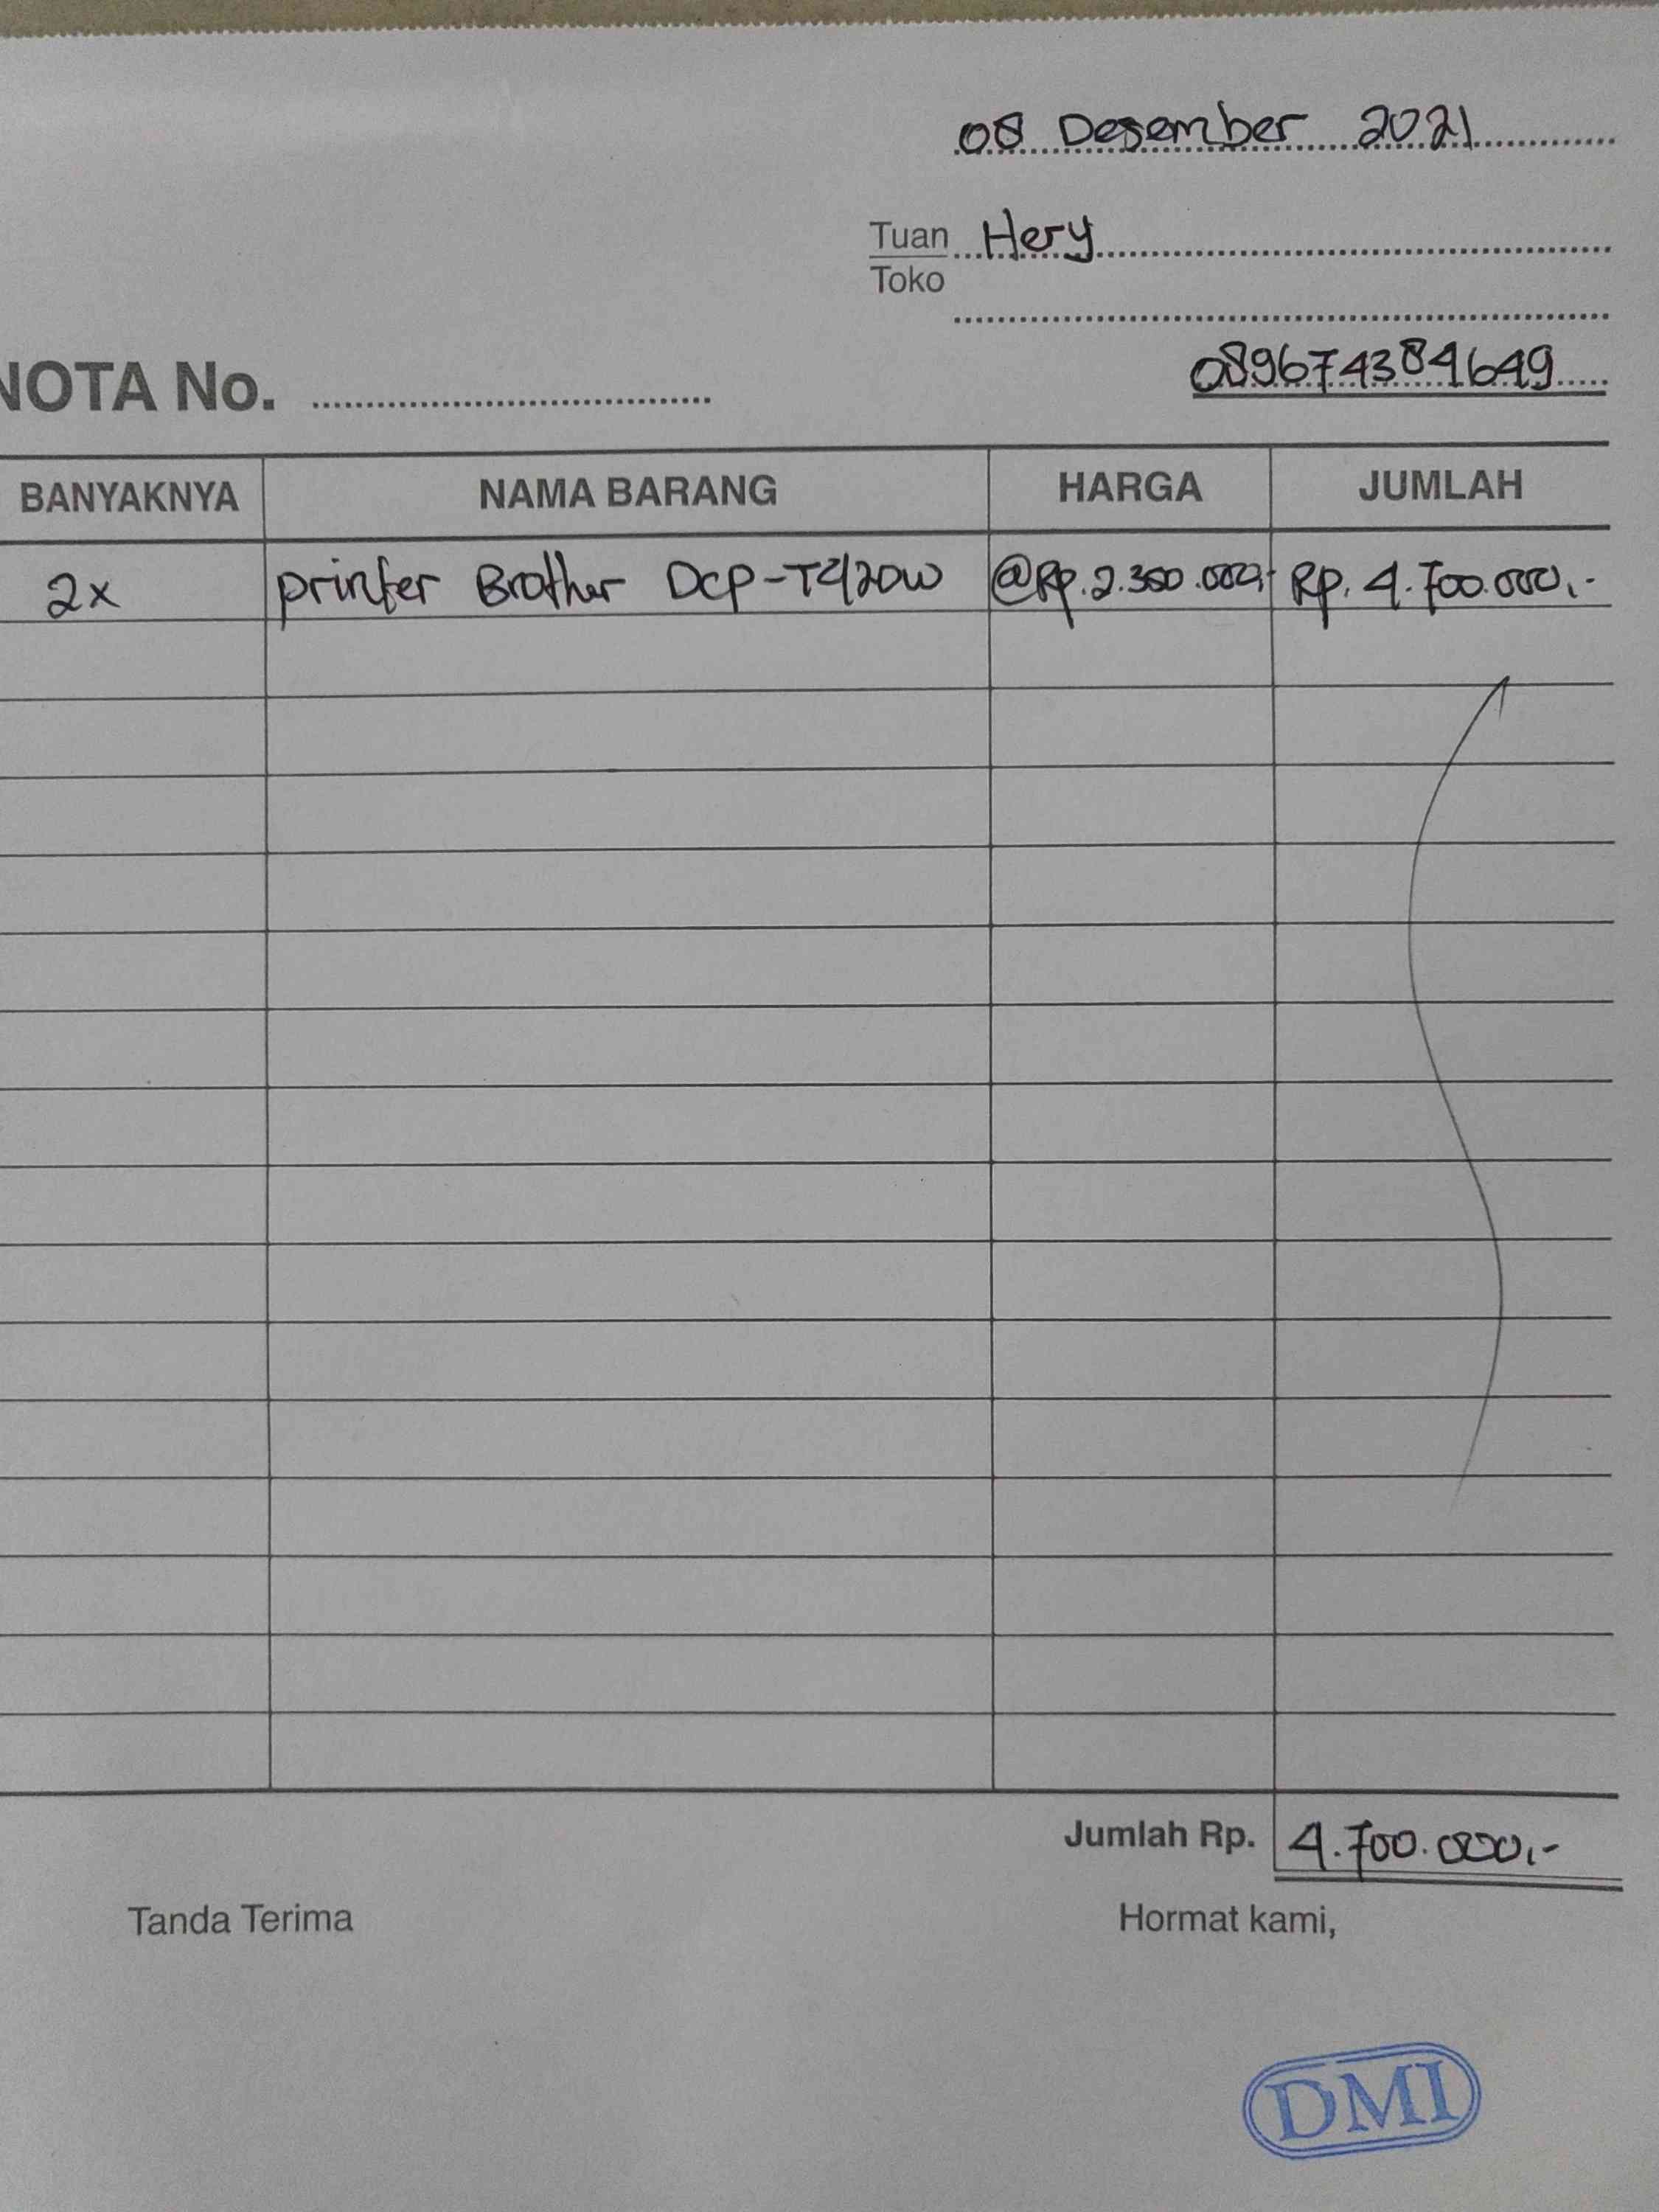 08 Desember 2021
Tuan Hery
Toko
089674384649
NOTA No.
BANYAKNYA NAMA BARANG HARGA JUMLAH
2x printer Brother DCP-T420W @Rp.2.350.000,- Rp. 4.700.000,-
Jumlah Rp. 4.700.000,-
Tanda Terima Hormat kami,
DMI